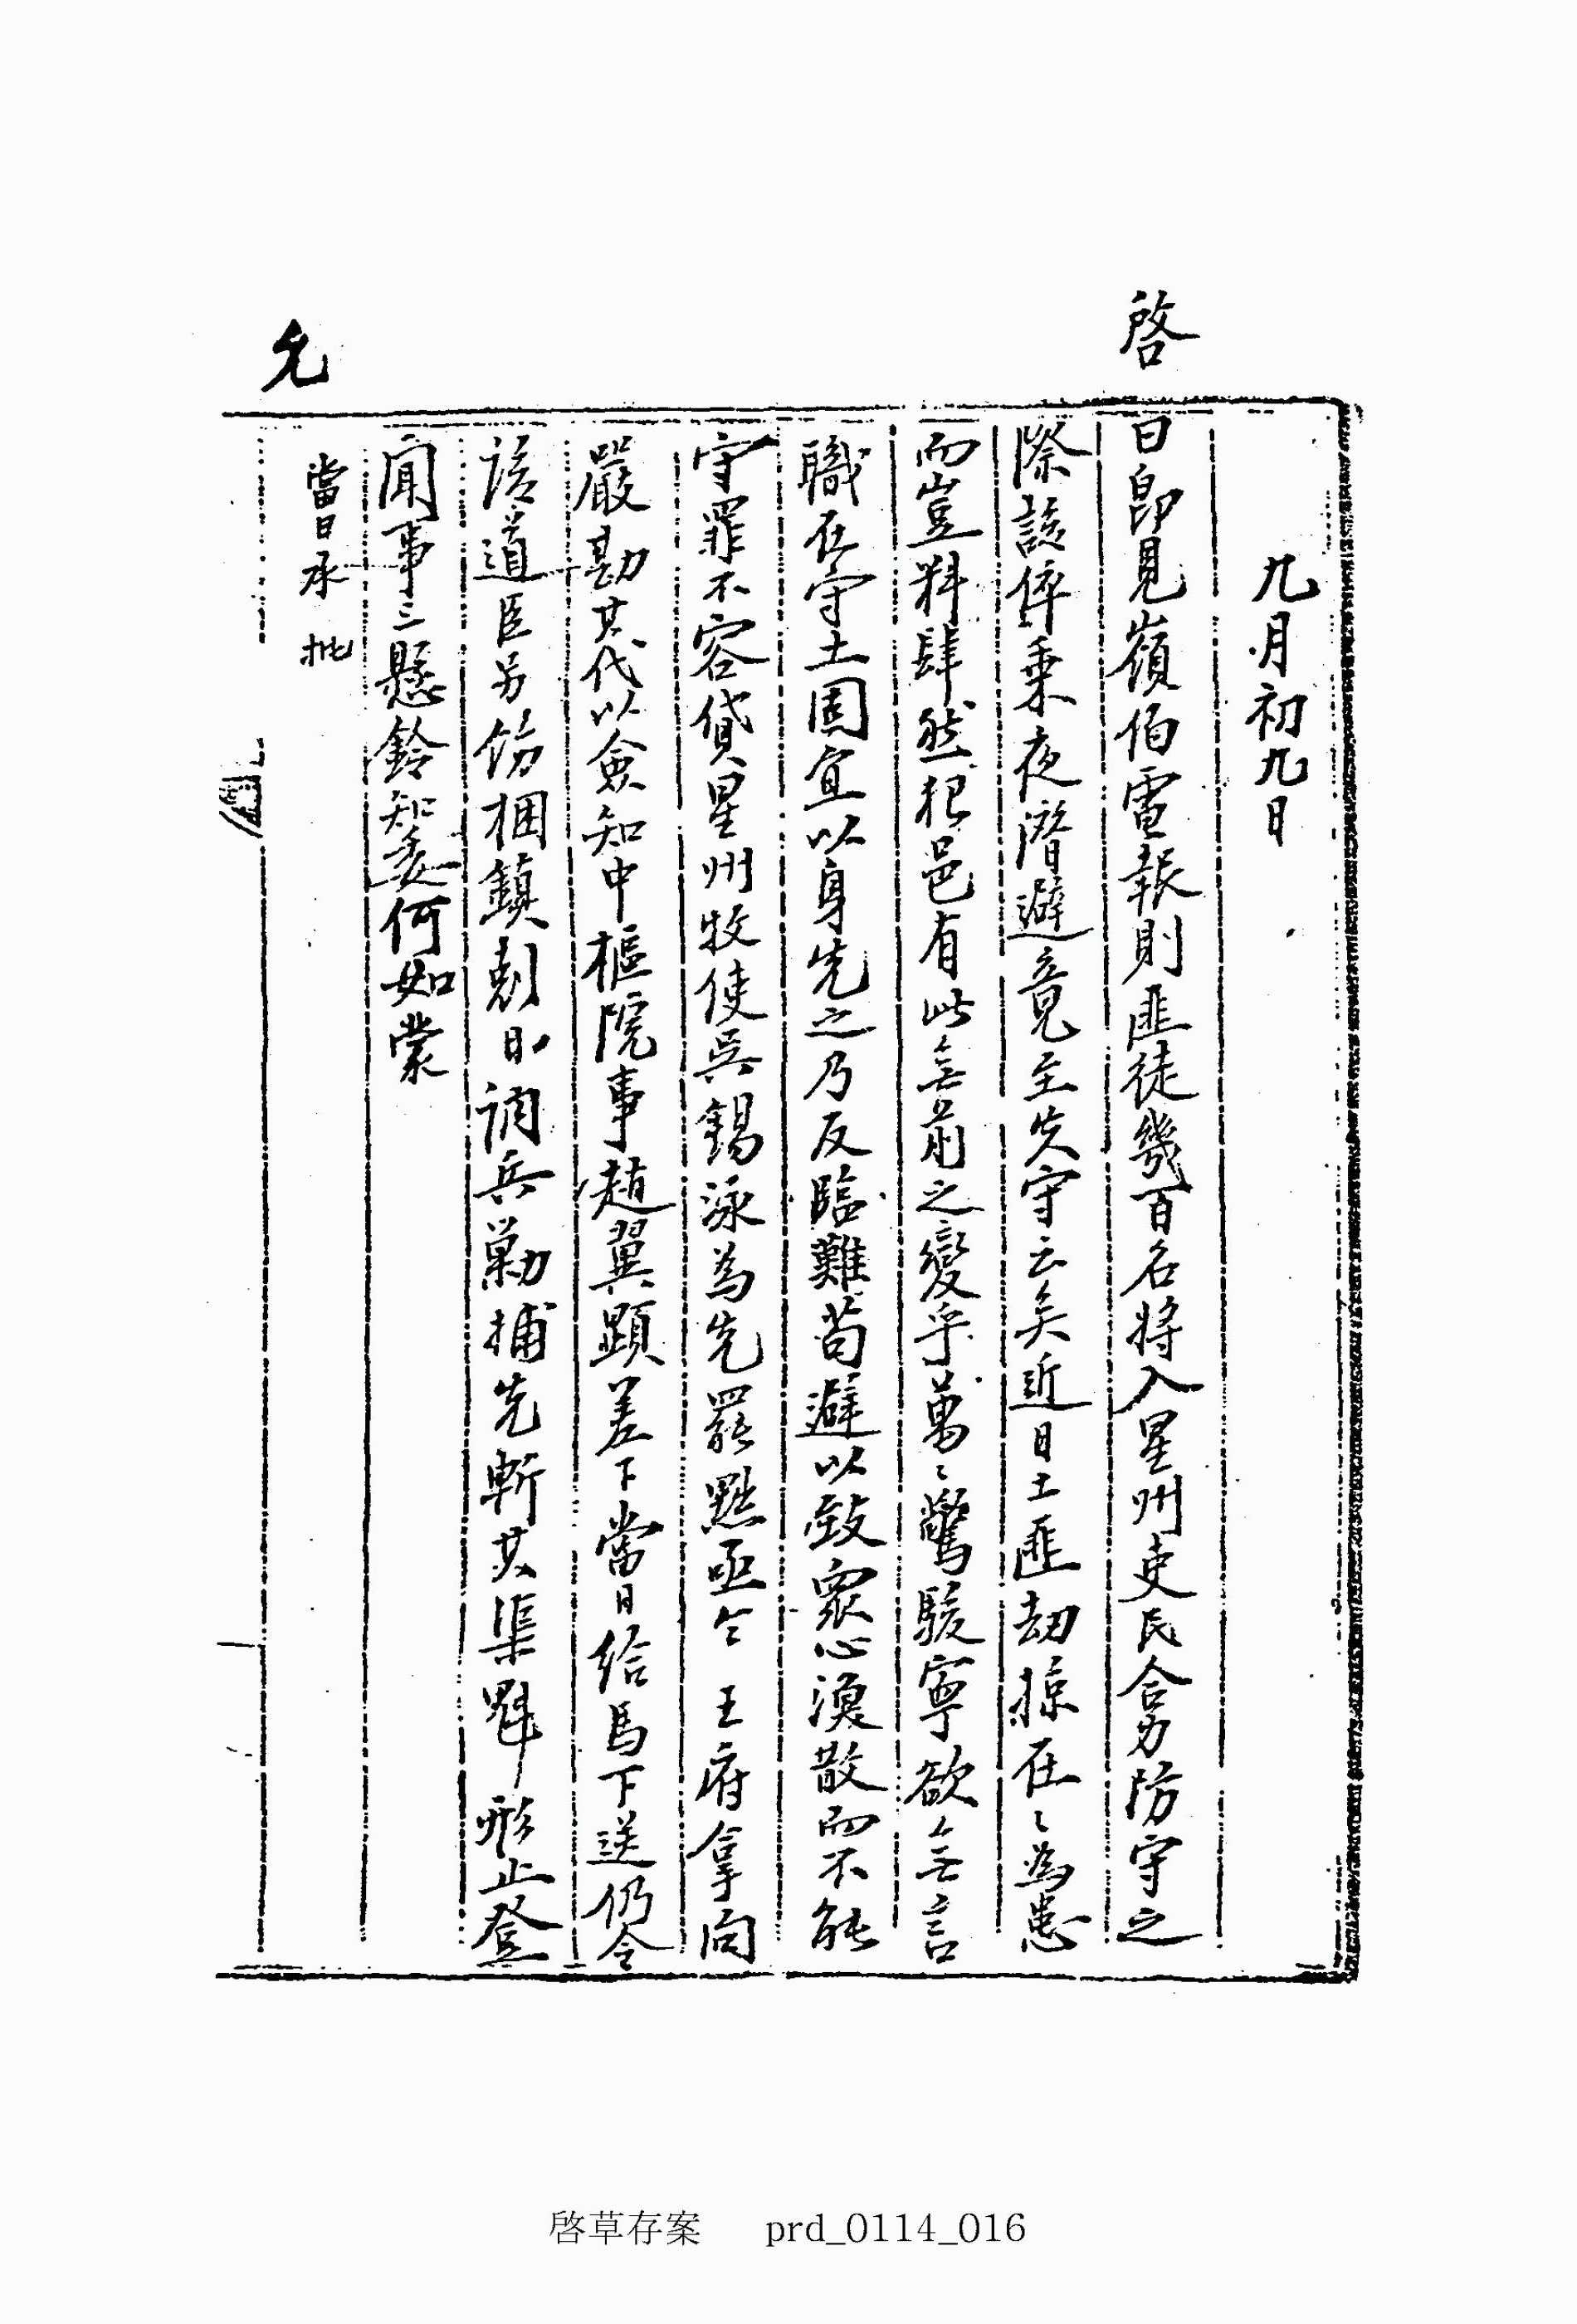 九月初九日
啓
曰卽見嶺伯電報則匪徒幾百名將入星州吏民合力防守之
際該倅乘夜潛避竟至失守云矣近日土匪劫掠在〻爲患
而豈料肆然犯邑有此無前之變乎萬〻驚駭寧欲無言
職在守土固宜以身先之乃反臨難苟避以致衆心渙散而不能
守罪不容貸星州牧使吳錫泳爲先罷黜亟令 王府拿問
嚴勘其代以僉知中樞院事趙翼顯差下當日給馬下送仍令
該道臣另飭梱鎭剋日調兵勦捕先斬其渠魁形止登
聞事三懸鈴知委何如蒙
允
當日承 批
啓草存案 prd_0114_016